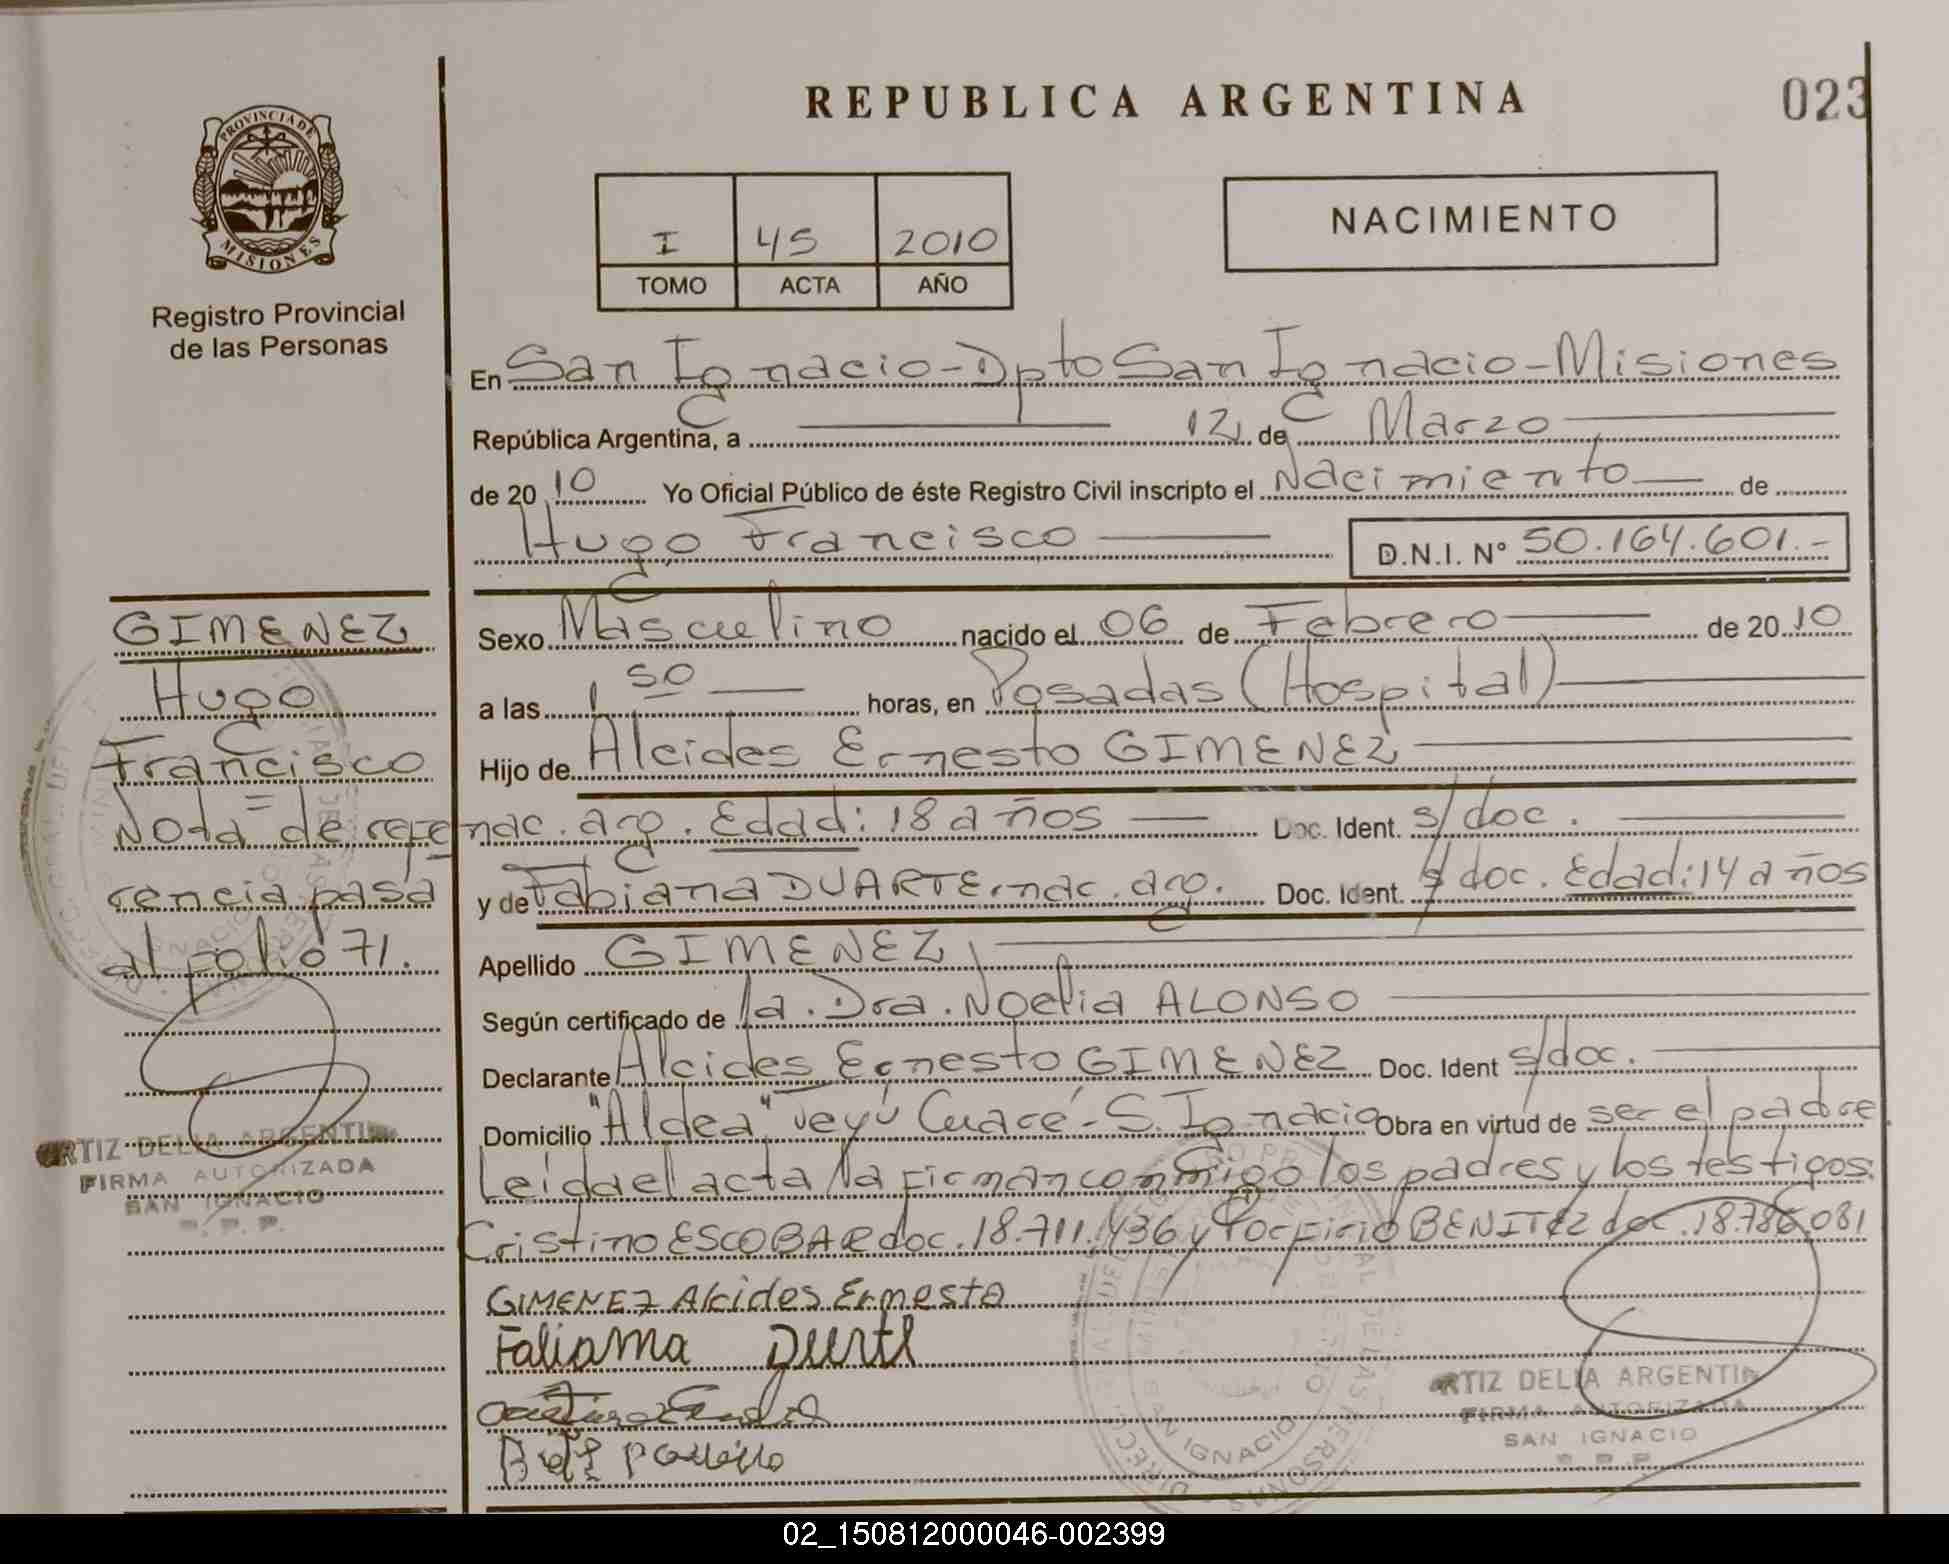 REPUBLICA ARGENTINA
023
PROVINCIA DE
MISIONES
Registro Provincial
de las Personas
I 45 2010
TOMO ACTA AÑO
NACIMIENTO
En San Ignacio - Dpto San Ignacio - Misiones
República Argentina, a 12 de Marzo
de 20 10 Yo Oficial Público de éste Registro Civil inscripto el Nacimiento de
Hugo Francisco D.N.I. N° 50.164.601.-
Sexo Masculino nacido el 06 de Febrero de 20 10
a las 1 50 horas, en Posadas (Hospital)
Hijo de Alcides Ernesto GIMENEZ
nac. arg. Edad: 18 años Doc. Ident. s/doc.
y de Fabiana DUARTE nac. arg. Doc. Ident. s/doc. Edad: 14 años
Apellido GIMENEZ
Según certificado de la. Dra. Noelia ALONSO
Declarante Alcides Ernesto GIMENEZ Doc. Ident s/doc.
Domicilio "Aldea" Teyú Cuaré - S. Ignacio Obra en virtud de ser el padre
Leída el acta la firman conmigo los padres y los testigos:
Cristino ESCOBAR doc. 18.711.436 y Porfirio BENITEZ doc. 18.786.081
GIMENEZ Alcides Ernesto
GIMENEZ
Hugo
Francisco
Nota = de refe
rencia pasa
al folio 71.
RTIZ DELIA ARGENTIN
FIRMA AUTORIZADA
SAN IGNACIO
RTIZ DELIA ARGENTIN
FIRMA AUTORIZADA
SAN IGNACIO
02_150812000046-002399